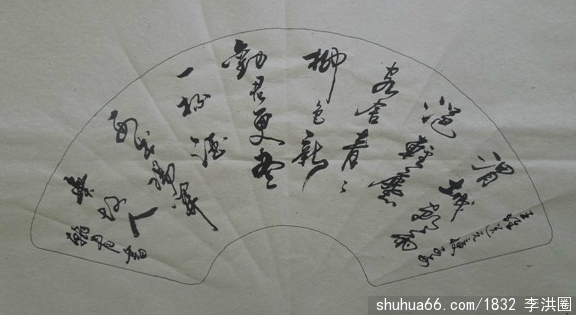 渭城朝雨
浥輕塵
客舍青々
柳色新
勸君更盡
一杯酒
西出陽關
無故人
shuhua66.com/1832 李洪圈